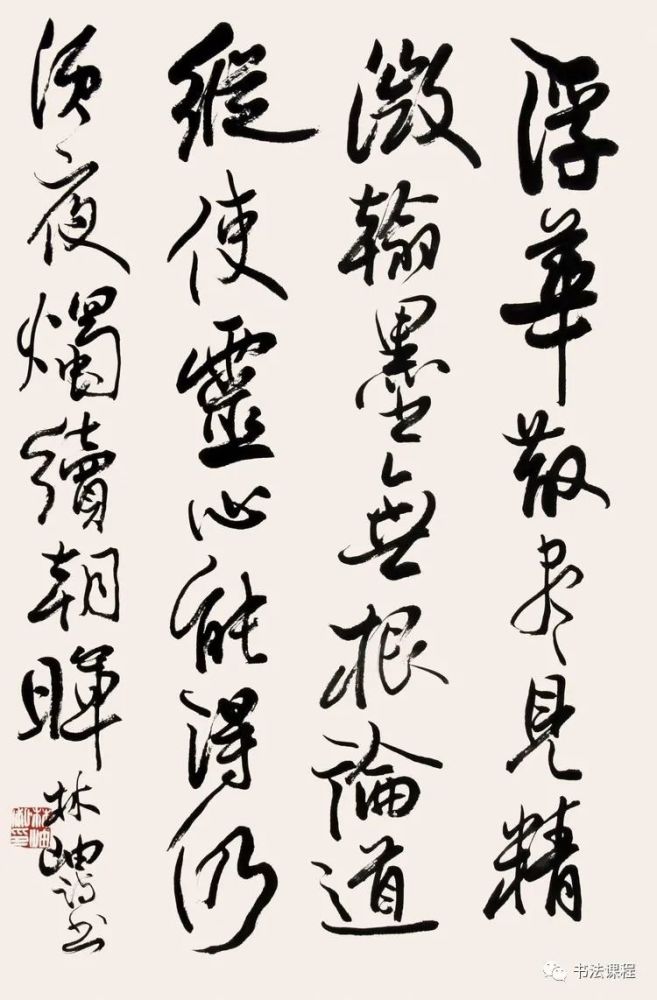 浮華散尽見精
微翰墨無根論道
縱使靈心能得仍
須夜燭續朝暉
林岫詩書
林岫
书法课程